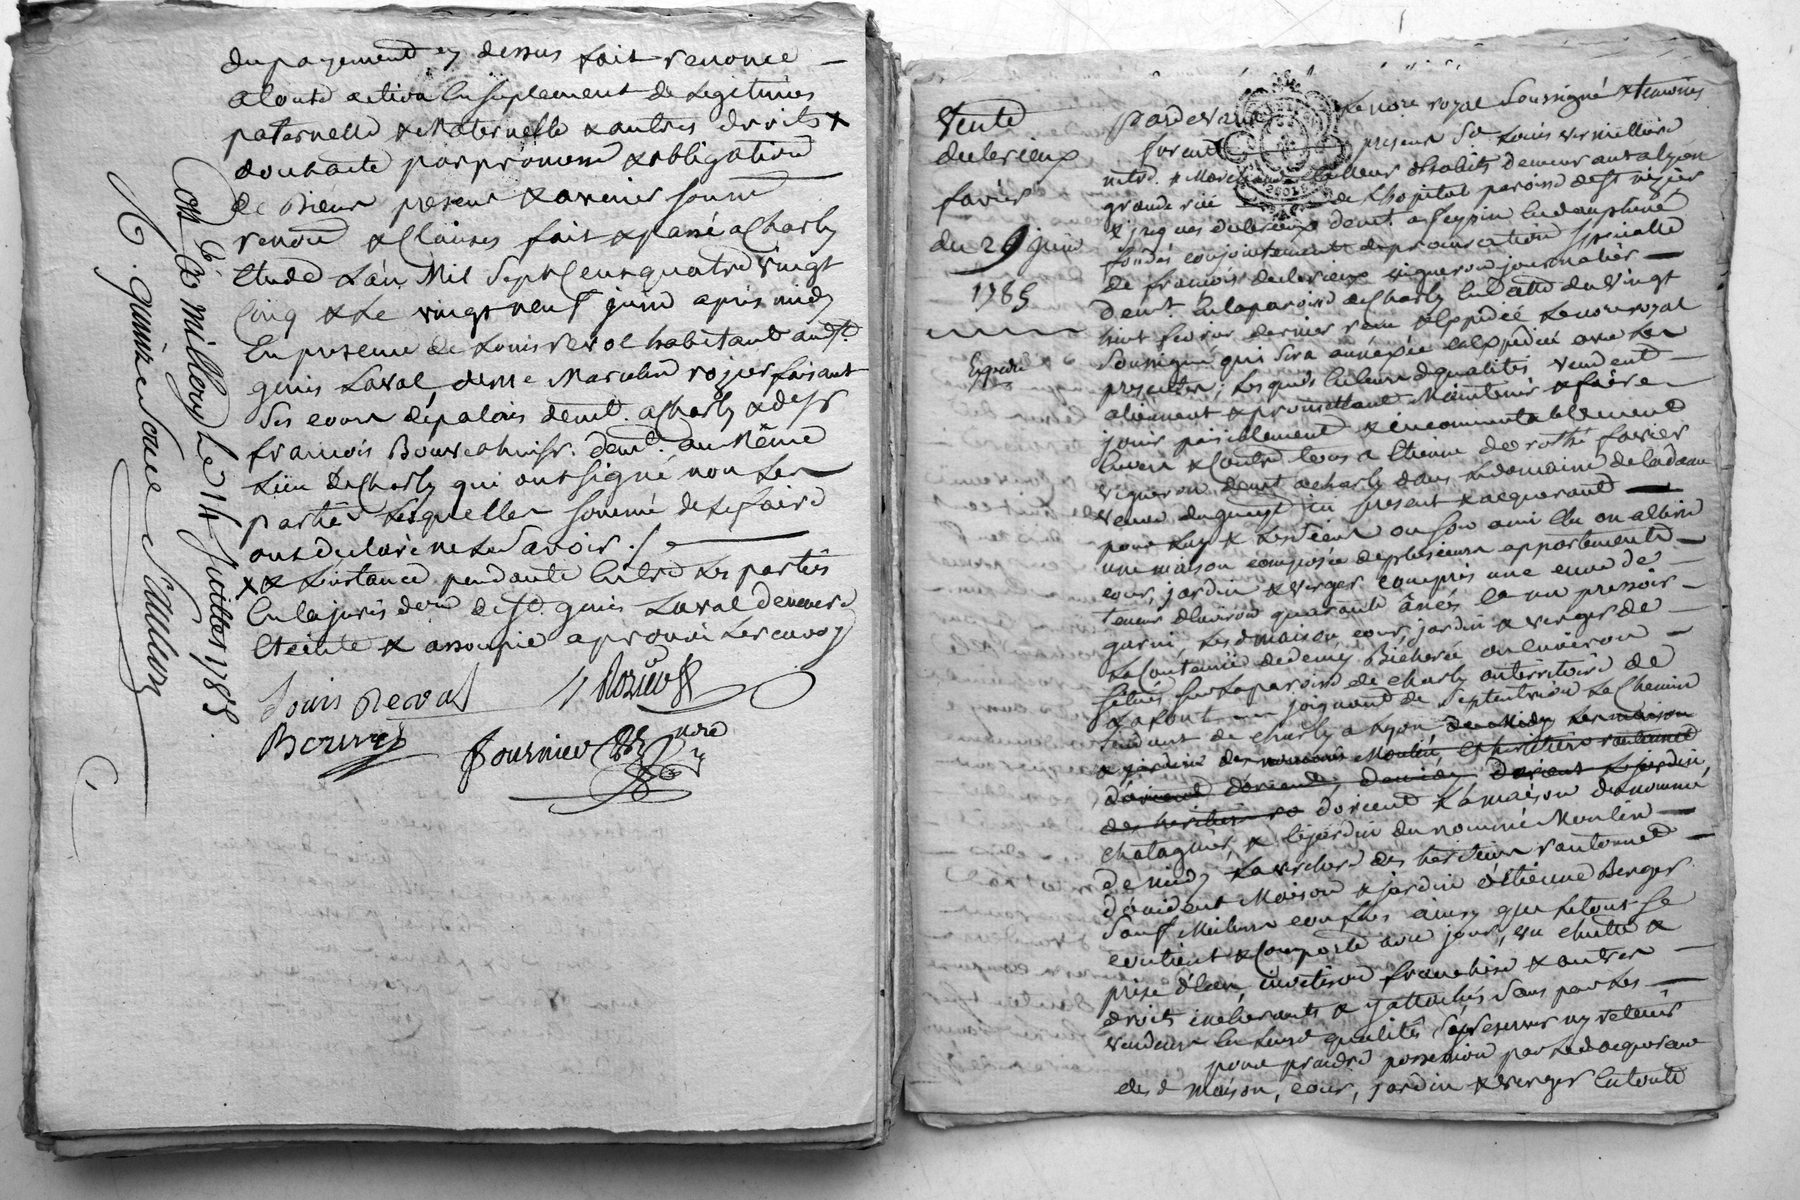 du payement cy dessus fait renonce
a toutte action en suplement de legitimes
paternelle & maternelle & autres droits X
souhaite par promesse & obligation
de biens present & avenir soum
renon & clauses fait & passé a Charly
étude l'an mil sept cent quatre vingt
cinq & le vingt neuf juin apres midy
en presence de Louis Reval habitant audt
genis Laval, de me Marcelin rozier faisant
ses cours de palais demt. a Charly & de Sr
françois Bouvet demt. au même
lieu de Charly qui ont signé non les
parties lesquelles sommé de le faire
ont declaré ne le savoir ./.
X & l'instance pendante entre les parties
en la juris don de St. genis Laval demeure
éteinte & assoupie aprouvé le renvoy
Louis Reval Rozier
Bouvet
Fournier nore
Con lé a millery le 14 juillet 1785
R. quinze sous Saulin
Vente
du lerieux
favier
du 29 juin
1785
Expedié
Pardevant Le nore royal soussigné & temoins
furent presens Sr Louis vermilliere
mtre & Marchand tailleur d'habits demeurant a Lyon
grande ruë de l'hopital paroisse de St nizier
& jacques dulerieux demt. a feyzin en dauphiné
fondés conjointement de procuration speciale
de françois dulerieux vigneron journalier
demt. en la paroisse de Charly en datte du vingt
huit fevrier dernier recu & expedié Le nore royal
soussigné qui sera annexée & expediée avec les
presentes; lesquels en leurs d qualités vendent
alienent & promettent maintenir & faire
jouir paisiblement & incommutablement
envers & contre tous a Etienne dorothé favier
vigneron demt a charly dans le domaine de la dame
veuve dugueyt ici present & acquerant
pour luy & les siens ou son ami élu ou a élire
une maison composée de plusieurs appartements
cour, jardin & verger compris une cuve de
teneur d'environ quarante ânées et un pressoir
garni, lesd maison, cour, jardin & verger de
la contenüe de demy Bicherée ou environ
situés sur la paroisse de charly au territoire de
joignant de septentrion le chemin
tendant de charly a Lyon de midy les maison
& jardin des nommés Moulin, & heritiers vautonnet
d'orient
des heritiers d'orient la maison du nommé
chatagnier, & le jardin du nommé Moulin
de midy la verchere des heritiers vautonnet
d'occident maison & jardin d'étienne Berger
sauf meilleurs confins ainsy que le tout se
contient & comporte avec jours, vu chutte &
prise d'eau, franchise & autres
droits inherants & y attachés sans par les
vendeurs en leurd qualités s'y reserver ny retenir
pour prendre possession par led acquereur
desd maison, cour, jardin & verger en toute